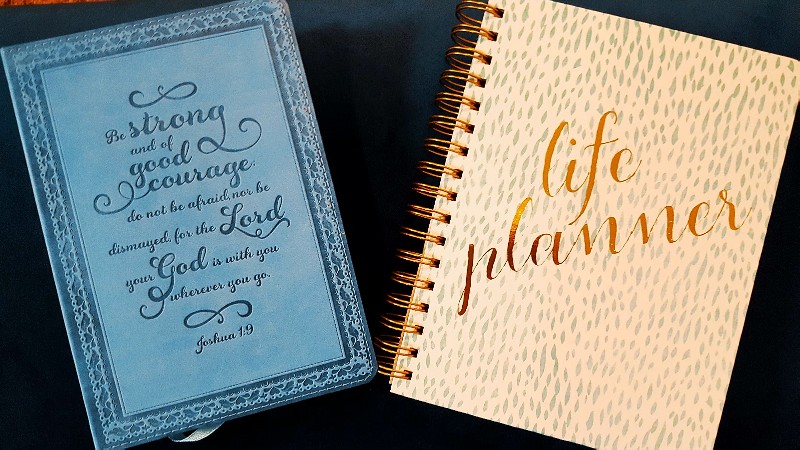 Be strong
and of
good
courage;
do not be afraid, nor be
dismayed, for the Lord
your God is with you
wherever you go.
Joshua 1:9
life
planner